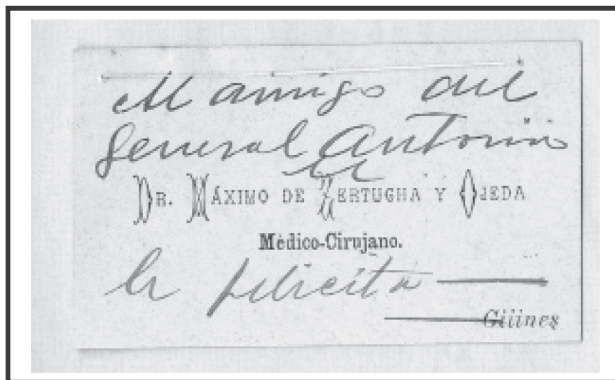 Al amigo del
General Antonio
el
DR. MÁXIMO DE ZERTUGHA Y OJEDA
Médico-Cirujano.
le felicita
Güines